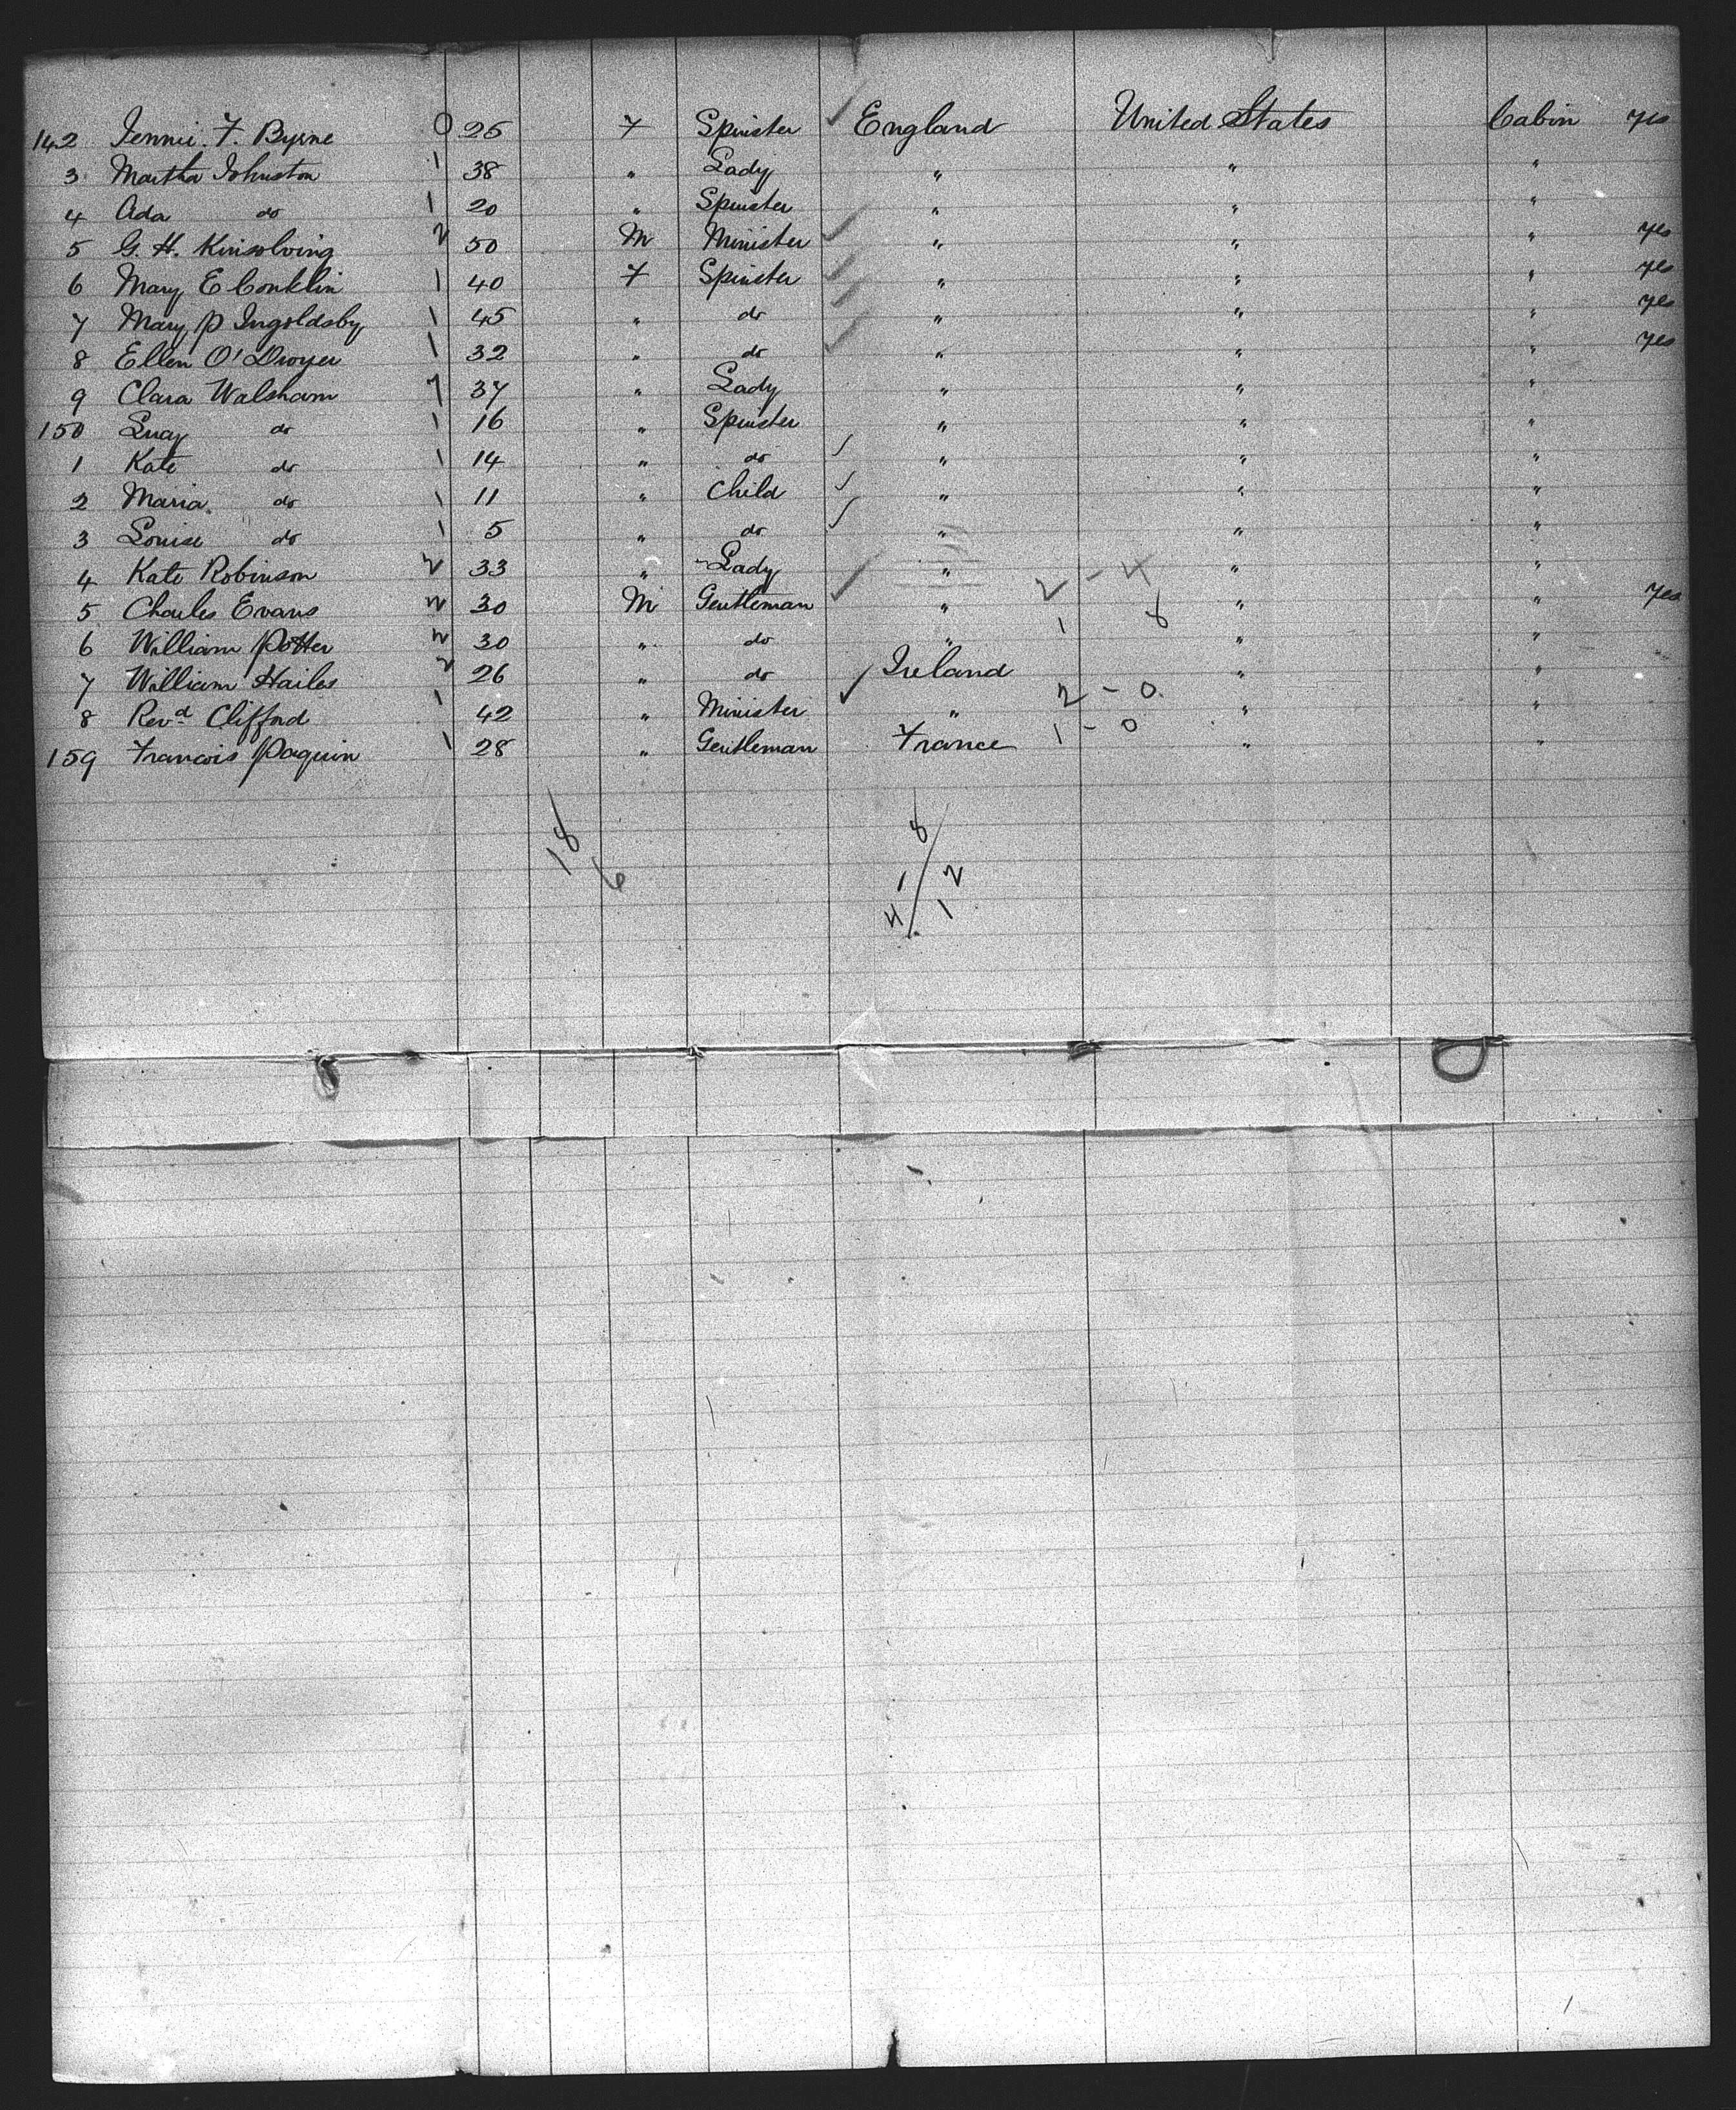 142 Jennie. F. Byrne 0 25 F Spinster ✓ England United States Cabin yes
3 Martha Johnston 1 38 " Lady " " "
4 Ada do 1 20 " Spinster " " "
5 G. H. Kinsolving 2 50 M Minister ✓ " " " yes
6 Mary E Conklin 1 40 F Spinster ✓ " " " yes
7 Mary P Ingoldsby 1 45 " do ✓ " " " yes
8 Ellen O'Dwyer 1 32 " do ✓ " " " yes
9 Clara Walsham 37 " Lady " " "
150 Lucy do 1 16 " Spinster " " "
1 Kate do 1 14 " do ✓ " " "
2 Maria. do 1 11 " Child ✓ " " "
3 Louise do 1 5 " do ✓ " " "
4 Kate Robinson 2 33 " Lady " 2 - 4 " "
5 Charles Evans 2 30 M Gentleman ✓ " 1 8 " " yes
6 William Potter 2 30 " do " " "
7 William Hailes 2 26 " do Ireland " "
8 Revd Clifford 1 42 " Minister ✓ " 2 - 0 " "
159 Francois Paquin 1 28 " Gentleman France 1 - 0 " "
18 / 6
8
1 / 2
4 / 1